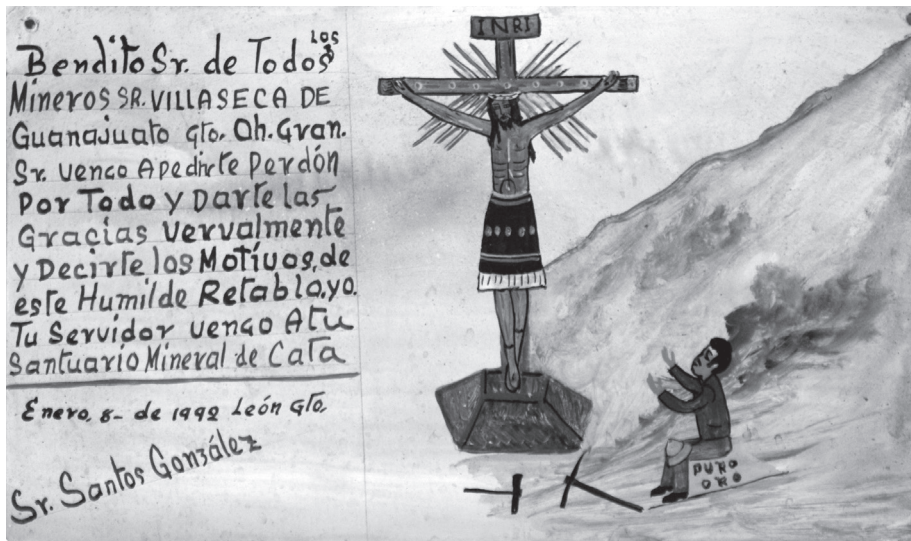 Bendito Sr. de Todos los
Mineros SR. VILLASECA DE
Guanajuato Gto. Oh. Gran.
Sr. vengo Apedirte Perdón
Por Todo y Darte las
Gracias Vervalmente
y Decirte los Motivos, de
este Humilde Retablo, yo.
Tu Servidor vengo Atu
Santuario Mineral de Cata
Enero, 8- de 1992 León Gto.
Sr. Santos González
INRI
PURO
ORO